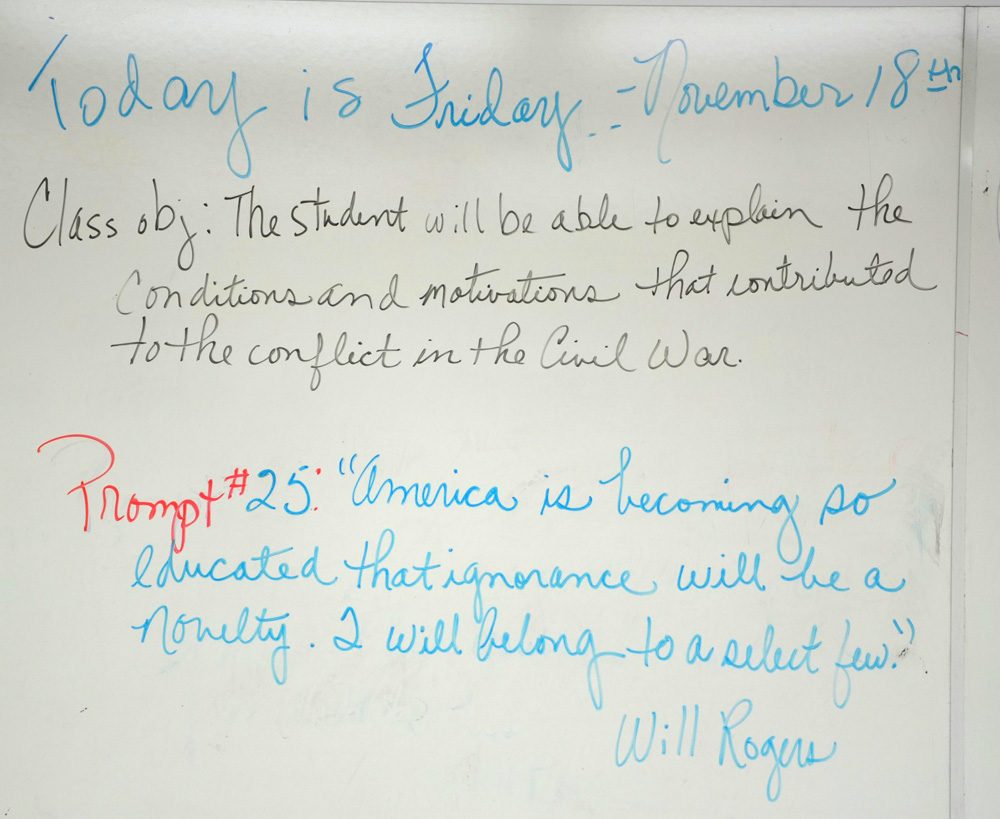 Today is Friday -- November 18th
Class obj: The student will be able to explain the
Conditions and motivations that contributed
to the conflict in the Civil War.
Prompt #25: "America is becoming so
educated that ignorance will be a
Novelty. I will belong to a select few."
Will Rogers